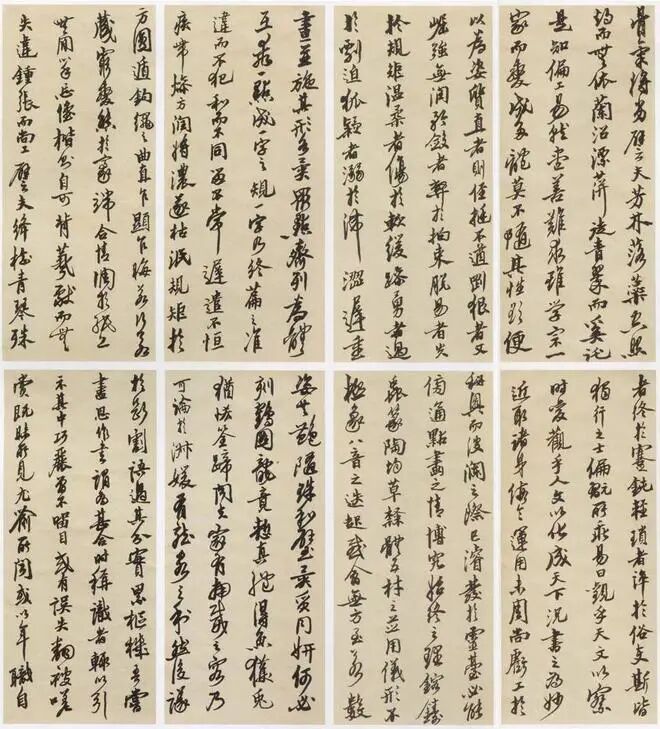 骨氣將劣譬夫芳林落蕊空照
灼而無依蘭沼漂萍徒青翠而奚託
是知偏工易就盡善難求雖學宗一
家而變成多體莫不隨其性欲便
以為姿質直者則俓挺不遒剛狠者又
倔強無潤矜斂者弊於拘束脫易者失
於規矩溫柔者傷於軟緩躁勇者過
於剽迫狐疑者溺於滯澀遲重
者終於蹇鈍輕瑣者染於俗吏斯皆
獨行之士偏翫所乖易曰觀乎天文以察
時變觀乎人文以化成天下況書之為妙
近取諸身假令運用未周尚虧工於
秘奧而波瀾之際已濬發於靈臺必能
傍通點畫之情博究始終之理鎔鑄
蟲篆陶均草隸體五材之並用儀形不
極象八音之迭起感會無方至若數
畫並施其形各異眾點齊列為體
互乖一點成一字之規一字乃終篇之准
違而不犯和而不同留不常遲遣不恆
疾帶燥方潤將濃遂枯泯規矩於
方圓遁鉤繩之曲直乍顯乍晦若行若
藏窮變態於毫端合情調於紙上
無間心手忘懷楷則自可背羲獻而無
失違鍾張而尚工譬夫絳樹青琴殊
姿共豔隋珠和璧異質同妍何必
刻鶴圖龍竟慚真體得魚獲兔
猶恡筌蹄聞夫家有南威之容乃
可論於淑媛有龍泉之利然後議
於斷割語過其分實累樞機吾嘗
盡思作書謂為甚合時稱識者輒以引
示其中巧麗曾不留目或有誤失翻被嗟
賞既昧所見尤喻所聞或以年職自